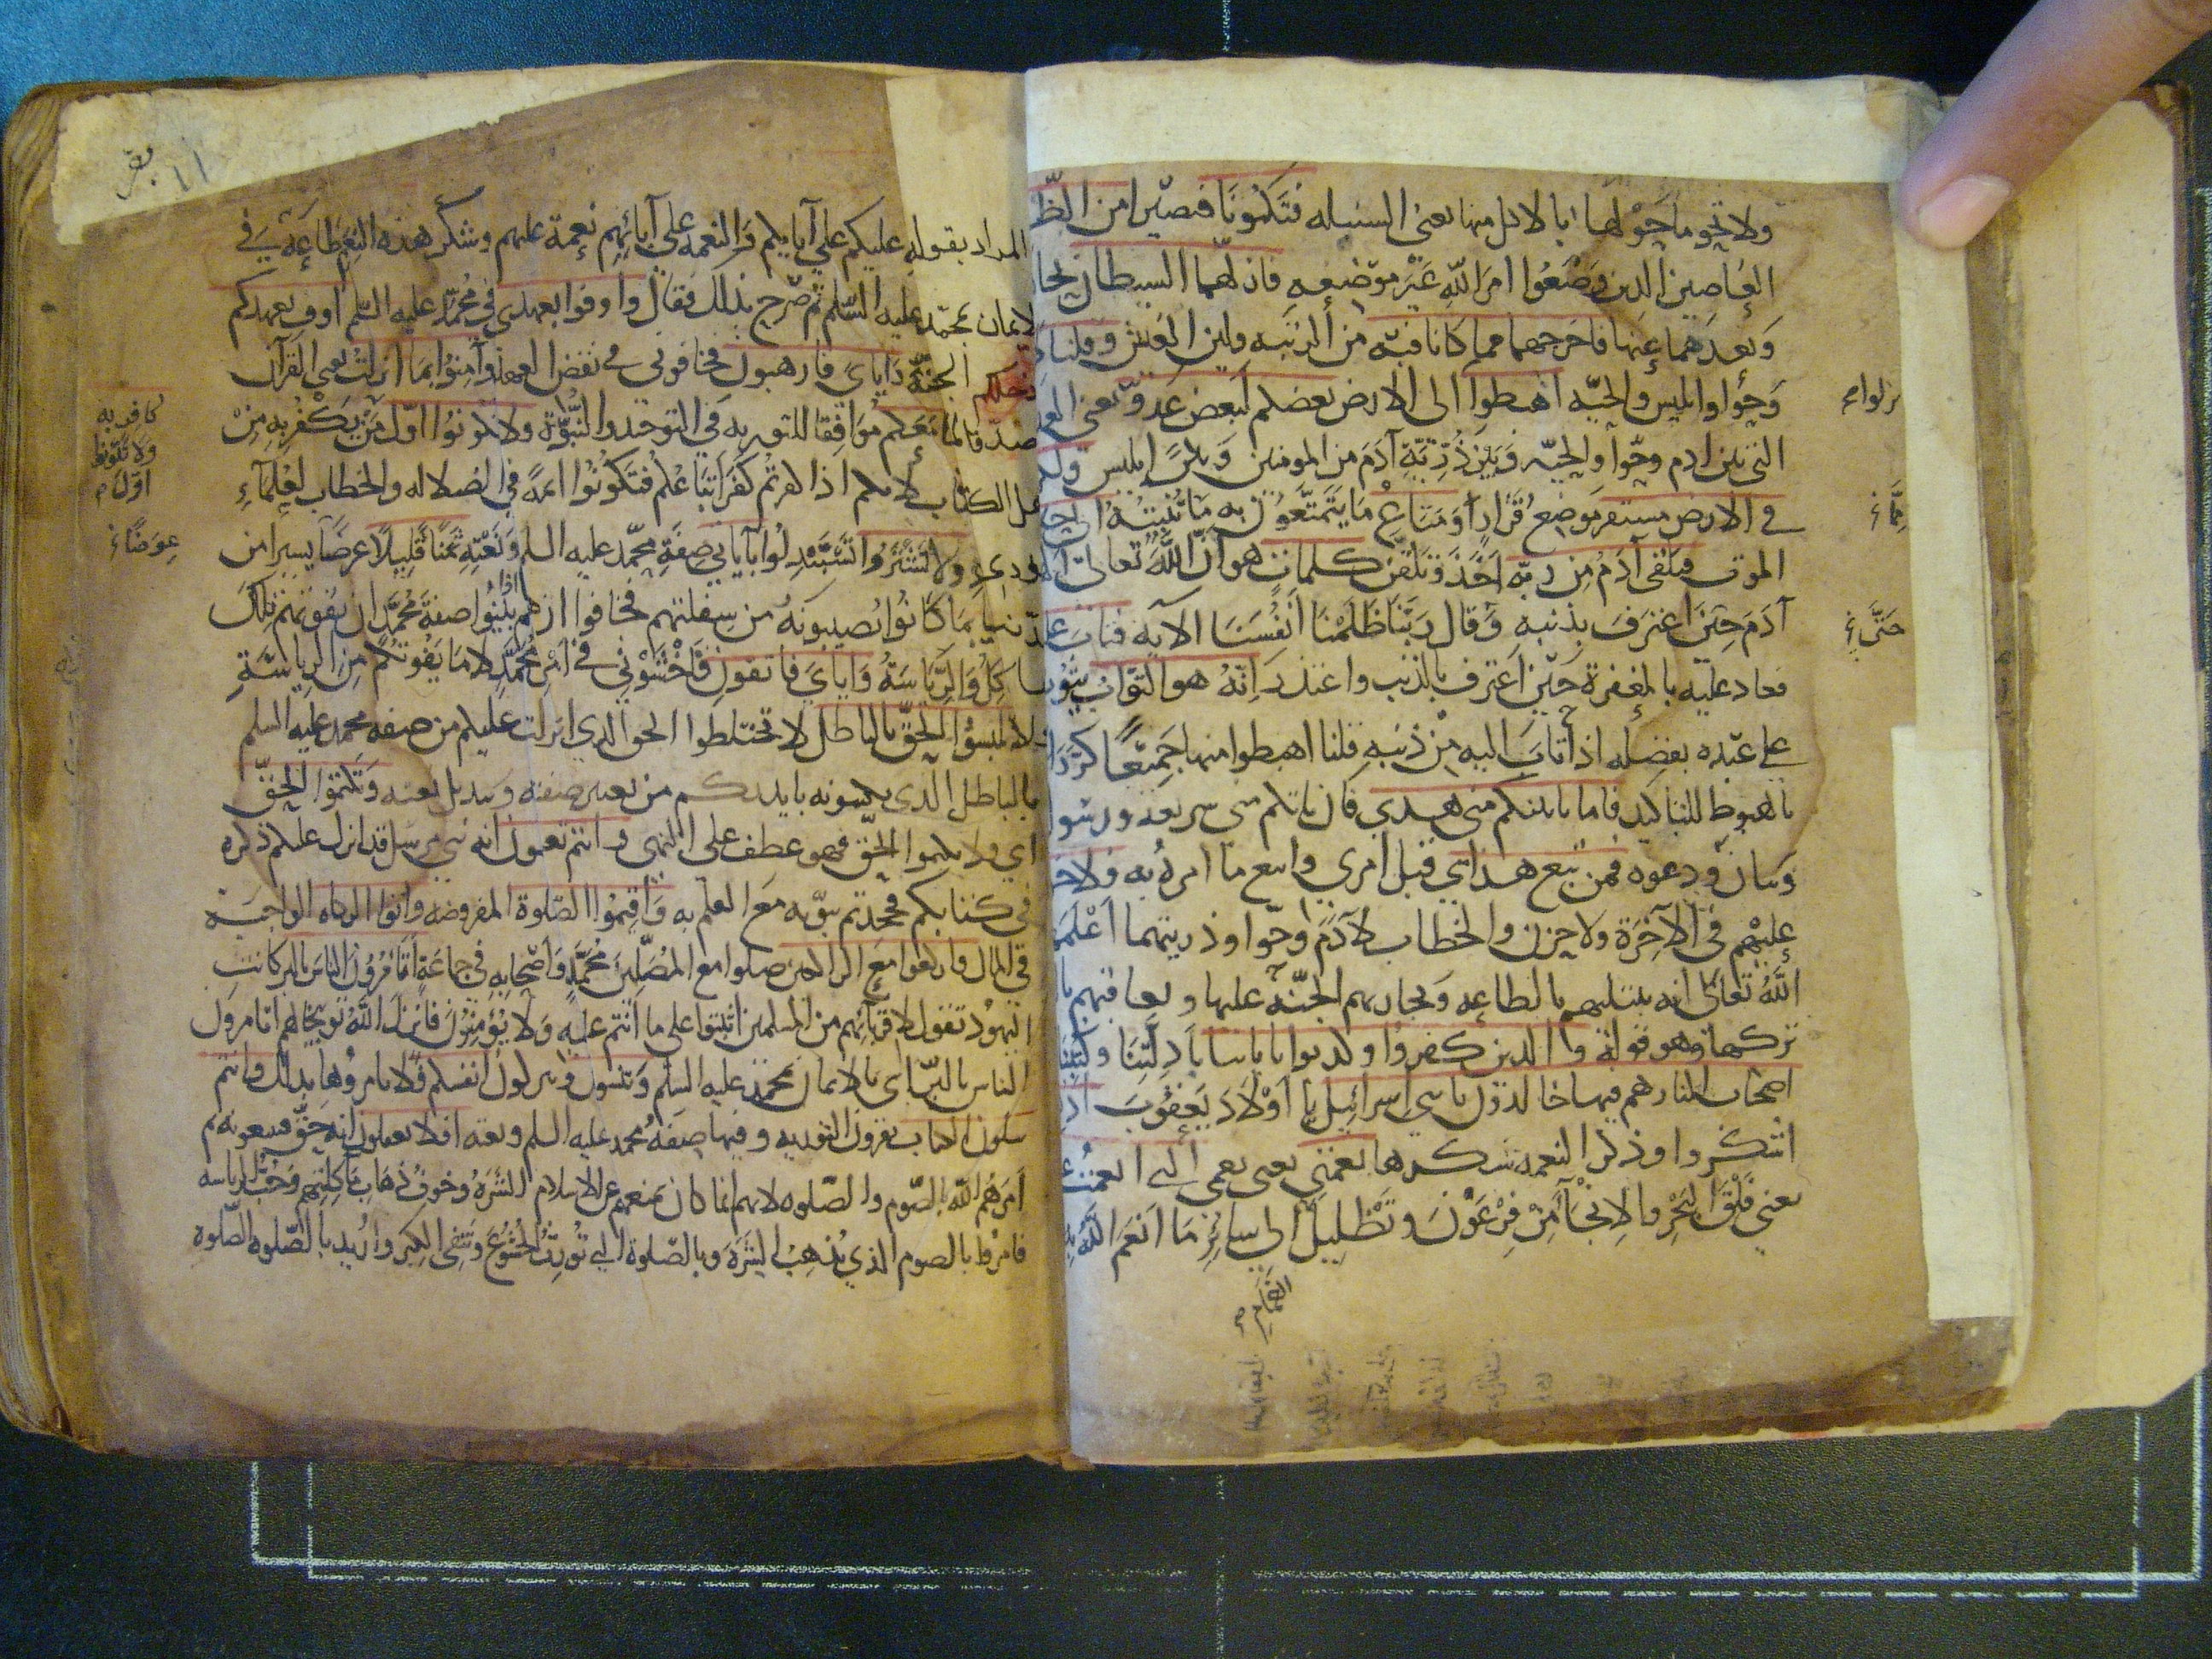 ولا تحوما حولها بالاكل منها يعني السنبله فتكونا فتصيرا من الظ
العاصين الذين وضعوا امر الله غير موضعه فازلهما الشيطان نحا
وبعدهما عنها فاخرجهما مما كانا فيه من الرتبه ولين العيش وقلنا
وحوا وابليس والحيه اهبطوا الى الارض بعضكم لبعض عدو يعني الع
نزلوا
التي بين ادم وحوا والحيه وبين ذرية آدم من المومنين وبين ابليس ولكم
في الارض مستقر موضع قرار ومتاع ما يتمتعون به مما تنبته الى حين
مما
الموت فتلقى آدم من ربه اخذ وتلقن كلمات هو ان الله تعالى
آدم حتى اعترف بذنبه وقال ربنا ظلمنا انفسنا الآيه فتاب عليه
حتى
فعاد عليه بالمغفرة حين اعترف بالذنب واعتذر انه هو التواب يتوب
على عبده بفضله اذا تاب اليه من ذنبه قلنا اهبطوا منها جميعا كرر ا
بالهبوط للتاكيد فاما ياتينكم مني هدى فان ياتكم مني شريعه ورسو
وبيان ودعوه فمن تبع هداي قبل امري واتبع ما امره به فلا خو
عليهم في الآخرة ولا حزن والخطاب لآدم وحوا وذريتهما اعلم
الله تعالى انه يبتليهم بالطاعه ويجازيهم الجنه عليها ويعاقبهم با
تركها وهو قوله والذين كفروا وكذبوا باياتنا بادلتنا وكتبنا
اصحاب النار هم فيها خالدون يا بني اسرائيل يا اولاد يعقوب اذ
اشكروا وذكر النعمه شكرها نعمتي يعني نعمي التي انعمت ع
يعني فلق البحر والانجاء من فرعون وتظليل الى سائر ما انعم الله به
الغمام
١١ بقر
المراد بقوله عليكم على آبايكم والنعمه على آبائهم نعمة عليهم وشكر هذه النعم طاعته في
الايمان بمحمد عليه السلم ثم صرح بذلك فقال واوفوا بعهدي في محمد عليه السلم اوف بعهدكم
ادخلكم الجنة واياي فارهبون فخافوني في نقض العهد وآمنوا بما انزلت يعني القرآن
مصدقا لما معكم موافقا للتوريه في التوحيد والنبوة ولا تكونوا اول من يكفر به من
كافر به
ولا تكونوا
اول
اهل الكتاب لانكم اذا كفرتم كفر اتباعكم فتكونوا ائمة في الضلاله والخطاب لعلماء
اليهود ولا تشتروا تستبدلوا بآياتي صفة محمد عليه السلم ونعته ثمنا قليلا عرضا يسيرا من
عوضا
الدنيا بما كانوا يصيبونه من سفلتهم فخافوا ان هم بينوا صفة محمد ان يفوتهم تلك
المآكل والرياسة واياي فاتقون فاخشوني في امر محمد لا ما يفوتكم من الرياسة
ولا تلبسوا الحق بالباطل لا تخلطوا الحق الذي انزلت عليكم من صفه محمد عليه السلم
بالباطل الذي تكتبونه بايديكم من تغيير صفته وتبديل نعته وتكتموا الحق
اي ولا تكتموا الحق فهو عطف على النهي وانتم تعلمون انه نبي مرسل قد انزل عليكم ذكره
في كتابكم فجحدتم نبوته مع العلم به واقيموا الصلوة المفروضه وآتوا الزكاه الواجبة
في المال واركعوا مع الراكعين صلوا مع المصلين محمد واصحابه في جماعة اتامرون الناس بالبر كانت
اليهود تقول لاقربائهم من المسلمين اثبتوا على ما انتم عليه ولا يؤمنون فانزل الله توبيخا لهم اتامرون
الناس بالبر اي بالايمان بمحمد عليه السلم وتنسون وتتركون انفسكم فلا تامرونها بذلك وانتم
تتلون الكتاب تقرؤن التوريه وفيها صفة محمد عليه السلم ونعته افلا تعقلون انه حق فتتبعونه ثم
امرهم الله بالصوم والصلوه لانهم انما كان يمنعهم عن الاسلام الشره وخوف ذهاب مآكلتهم وحب الرياسه
فامروا بالصوم الذي يذهب الشره وبالصلوة التي تورث الخشوع وتنفي الكبر واريد بالصلوه الصلوة